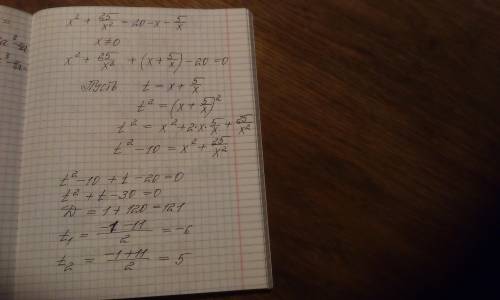 x² + 25/x² = 20 - x - 5/x
x ≠ 0
x² + 25/x² + (x + 5/x) - 20 = 0
Пусть t = x + 5/x
t² = (x + 5/x)²
t² = x² + 2·x·5/x + 25/x²
t² - 10 = x² + 25/x²
t² - 10 + t - 20 = 0
t² + t - 30 = 0
D = 1 + 120 = 121
t₁ = (-1 - 11)/2 = -6
t₂ = (-1 + 11)/2 = 5